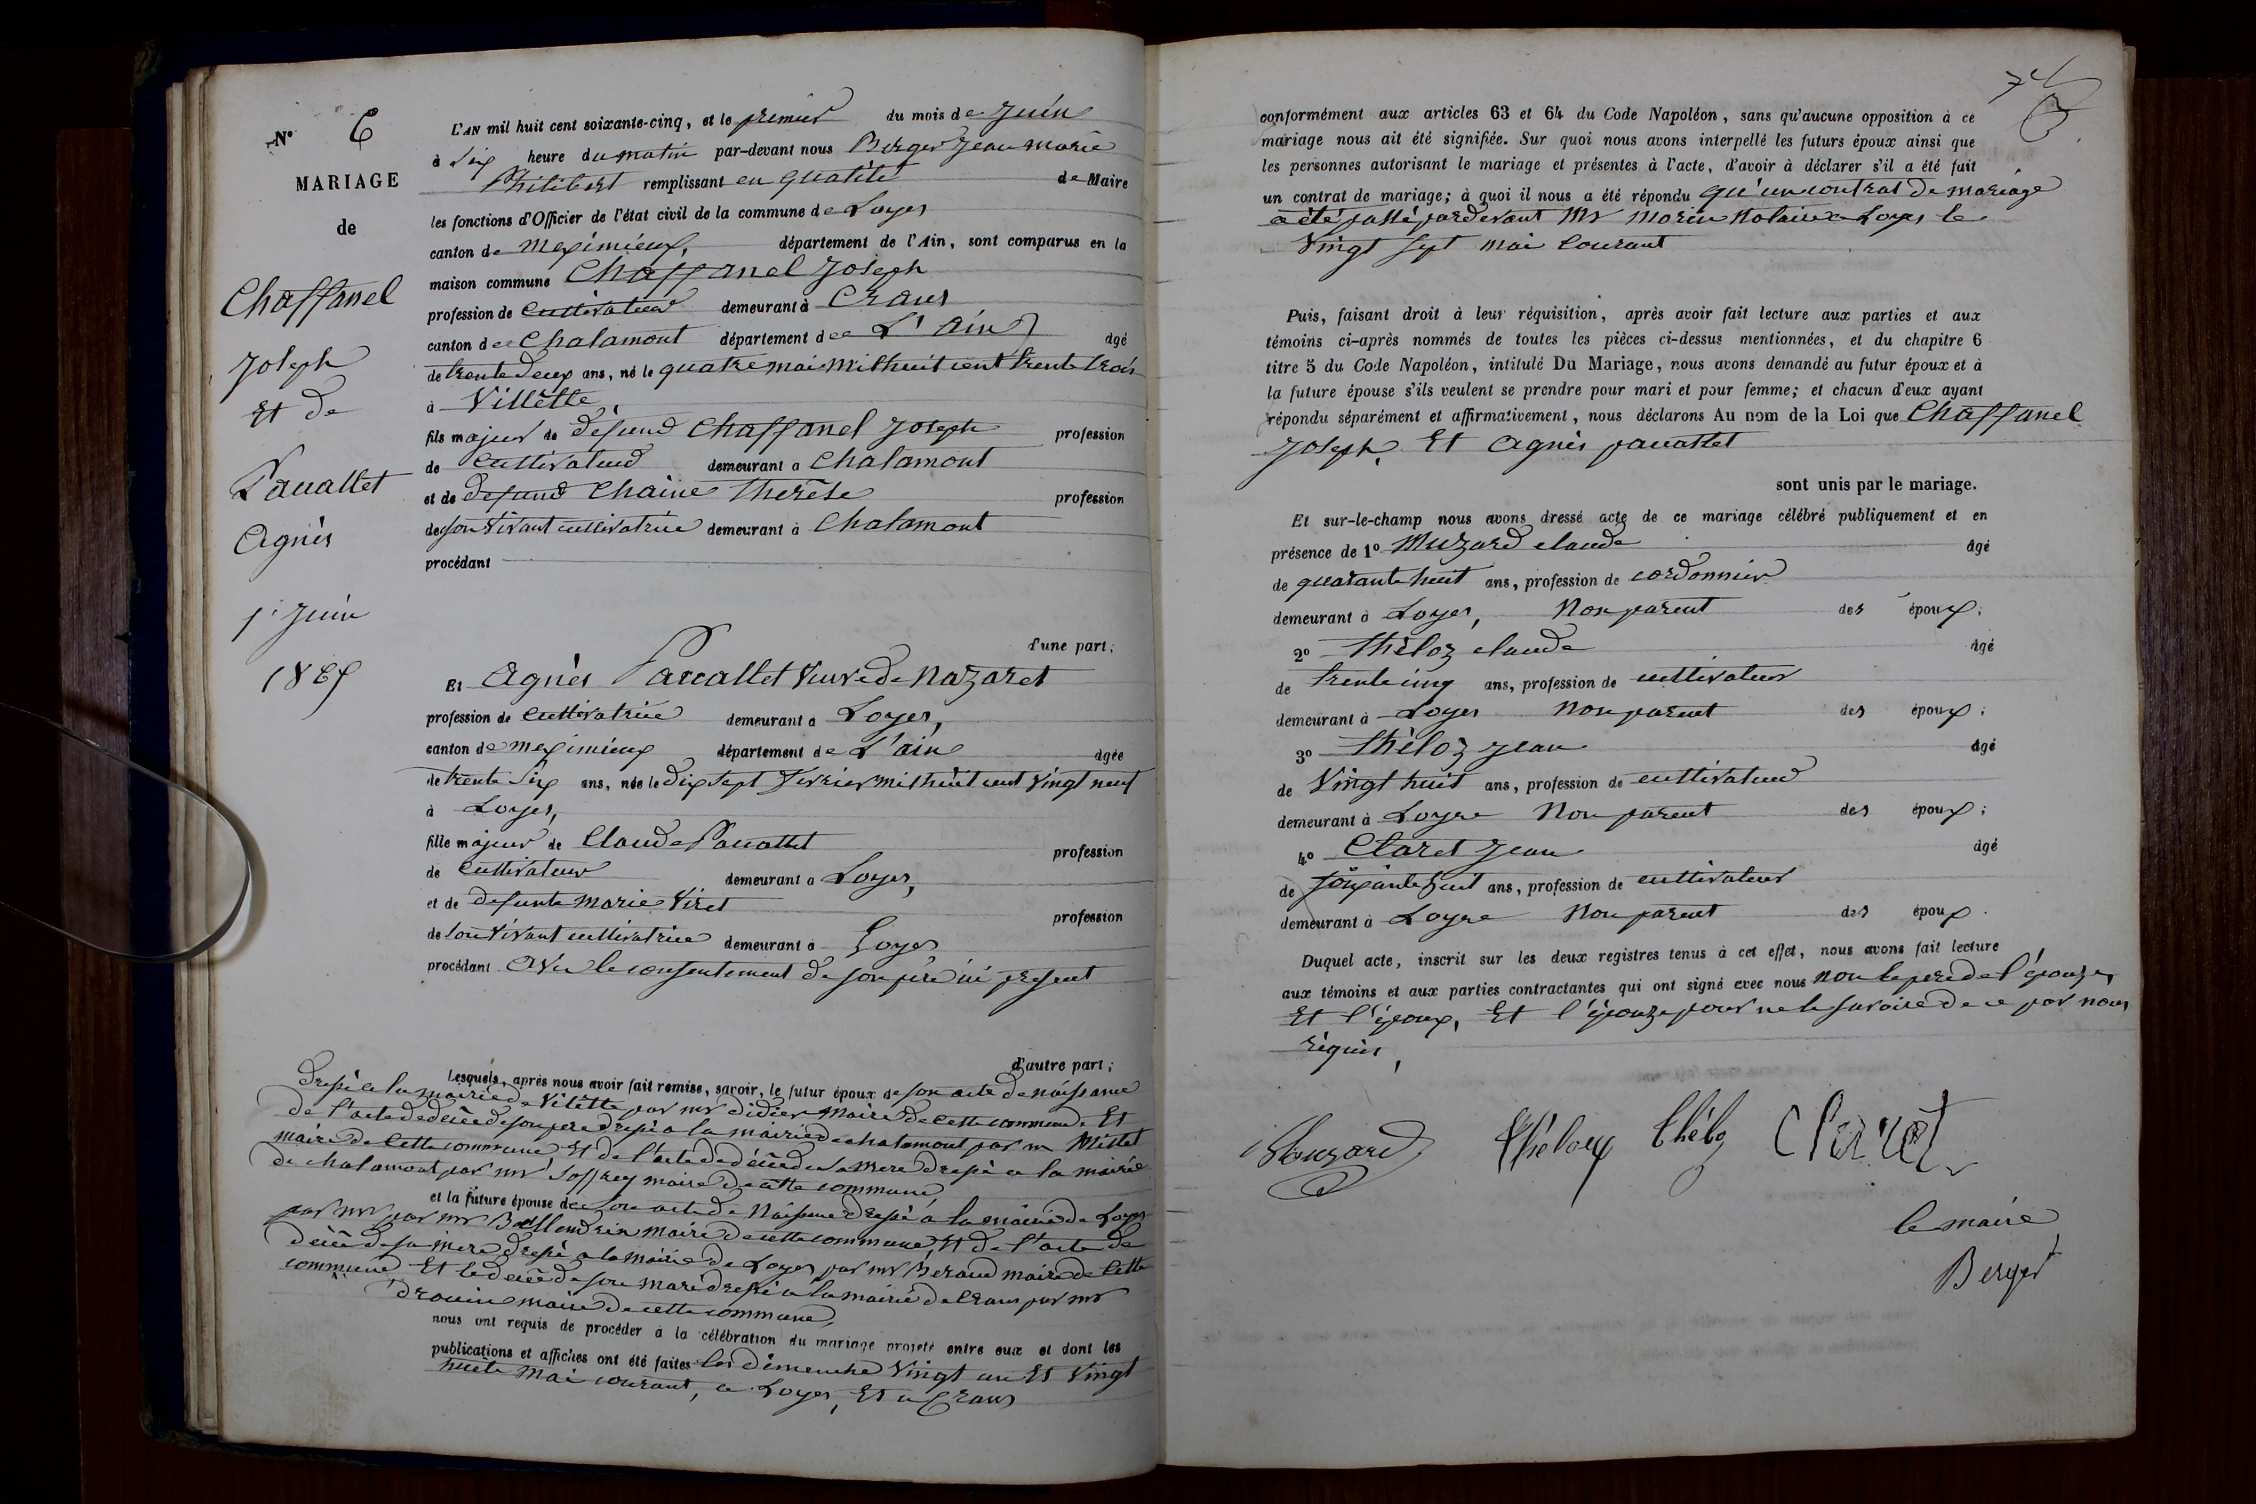 N° 6
MARIAGE
de
Chaffanel
Joseph
Et de
Pauallet
Agnès
1er Juin
1865
L'AN mil huit cent soixante-cinq, et le premier du mois de Juin
à Six heure du matin par-devant nous Berger Jean marie
Philibert remplissant en qualité de Maire
les fonctions d'Officier de l'état civil de la commune de Loyes
canton de meximieux, département de l'Ain, sont comparus en la
maison commune Chaffanel Joseph
profession de cultivateur demeurant à Crans
canton de Chalamont département de L'ain âgé
de trente deux ans, né le quatre mai mil huit cent trente trois
à Villette,
fils majeur de défund Chaffanel Joseph profession
de cultivateur demeurant à Chalamont
et de defund Chaine Therèse profession
de son vivant cultivatrice demeurant à Chalamont
procédant
d'une part;
Et Agnès Pauallet Veuve de Nazaret
profession de cultivatrice demeurant à Loyes,
canton de meximieux département de L'ain âgée
de trente Six ans, née le dix sept Fevrier mil huit cent vingt neuf
à Loyes,
fille majeur de Claude Pauallet profession
de cultivateur demeurant à Loyes,
et de defunte marie Viret profession
de son vivant cultivatrice demeurant à Loyes
procédant avec le consentement de son père ici présent
d'autre part;
Lesquels, après nous avoir fait remise, savoir, le futur époux de son acte de naissance
dressé a la mairie de Vilette par mr didier maire de cette commune Et
de l'acte de décée de son pere dressé a la mairie de chalamont par m Millet
maire de cette commune Et de l'acte de décée de sa mere dressé a la mairie
de chalamont par mr Joffrey maire de cette commune,
et la future épouse de son acte de Naissance dressé à la mairie de Loyes
par mr par mr maire de cette commune, Et de l'acte de
décée de sa mere dressé a la mairie de Loyes par mr Béraud maire de cette
commune Et le decée de son mari dressé a la mairie de Crans par mr
Drouin maire de cette commune,
nous ont requis de procéder à la célébration du mariage projeté entre eux et dont les
publications et affiches ont été faites les dimenche Vingt un Et Vingt
huit mai courant, a Loyes, Et a Crans
74
conformément aux articles 63 et 64 du Code Napoléon, sans qu'aucune opposition à ce
mariage nous ait été signifiée. Sur quoi nous avons interpellé les futurs époux ainsi que
les personnes autorisant le mariage et présentes à l'acte, d'avoir à déclarer s'il a été fait
un contrat de mariage; à quoi il nous a été répondu qu'un contrat de mariage
a été passé pardevant Mr Morin Notaire a Loyes le
Vingt Sept mai Courant
Puis, faisant droit à leur réquisition, après avoir fait lecture aux parties et aux
témoins ci-après nommés de toutes les pièces ci-dessus mentionnées, et du chapitre 6
titre 5 du Code Napoléon, intitulé Du Mariage, nous avons demandé au futur époux et à
la future épouse s'ils veulent se prendre pour mari et pour femme; et chacun d'eux ayant
répondu séparément et affirmativement, nous déclarons Au nom de la Loi que Chaffanel
Joseph, Et Agnès pauallet
sont unis par le mariage.
Et sur-le-champ nous avons dressé acte de ce mariage célébré publiquement et en
présence de 1° Muzard claude âgé
de quarante huit ans, profession de cordonnier
demeurant à Loyes, Non parent des époux;
2° Théloz claude âgé
de trente cinq ans, profession de cultivateur
demeurant à Loyes Non parent des époux;
3° Théloz Jean âgé
de Vingt huit ans, profession de cultivateur
demeurant à Loyse Non parent des époux;
4° Claret Jean âgé
de soixante huit ans, profession de cultivateur
demeurant à Loyse Non parent des époux.
Duquel acte, inscrit sur les deux registres tenus à cet effet, nous avons fait lecture
aux témoins et aux parties contractantes qui ont signé avec nous non le pere de l'épouze,
Et l'époux, Et l'épouze pour ne le savoire de ce par nous
réquis,
Muzard Théloz Théloz Claret
le maire
Berger